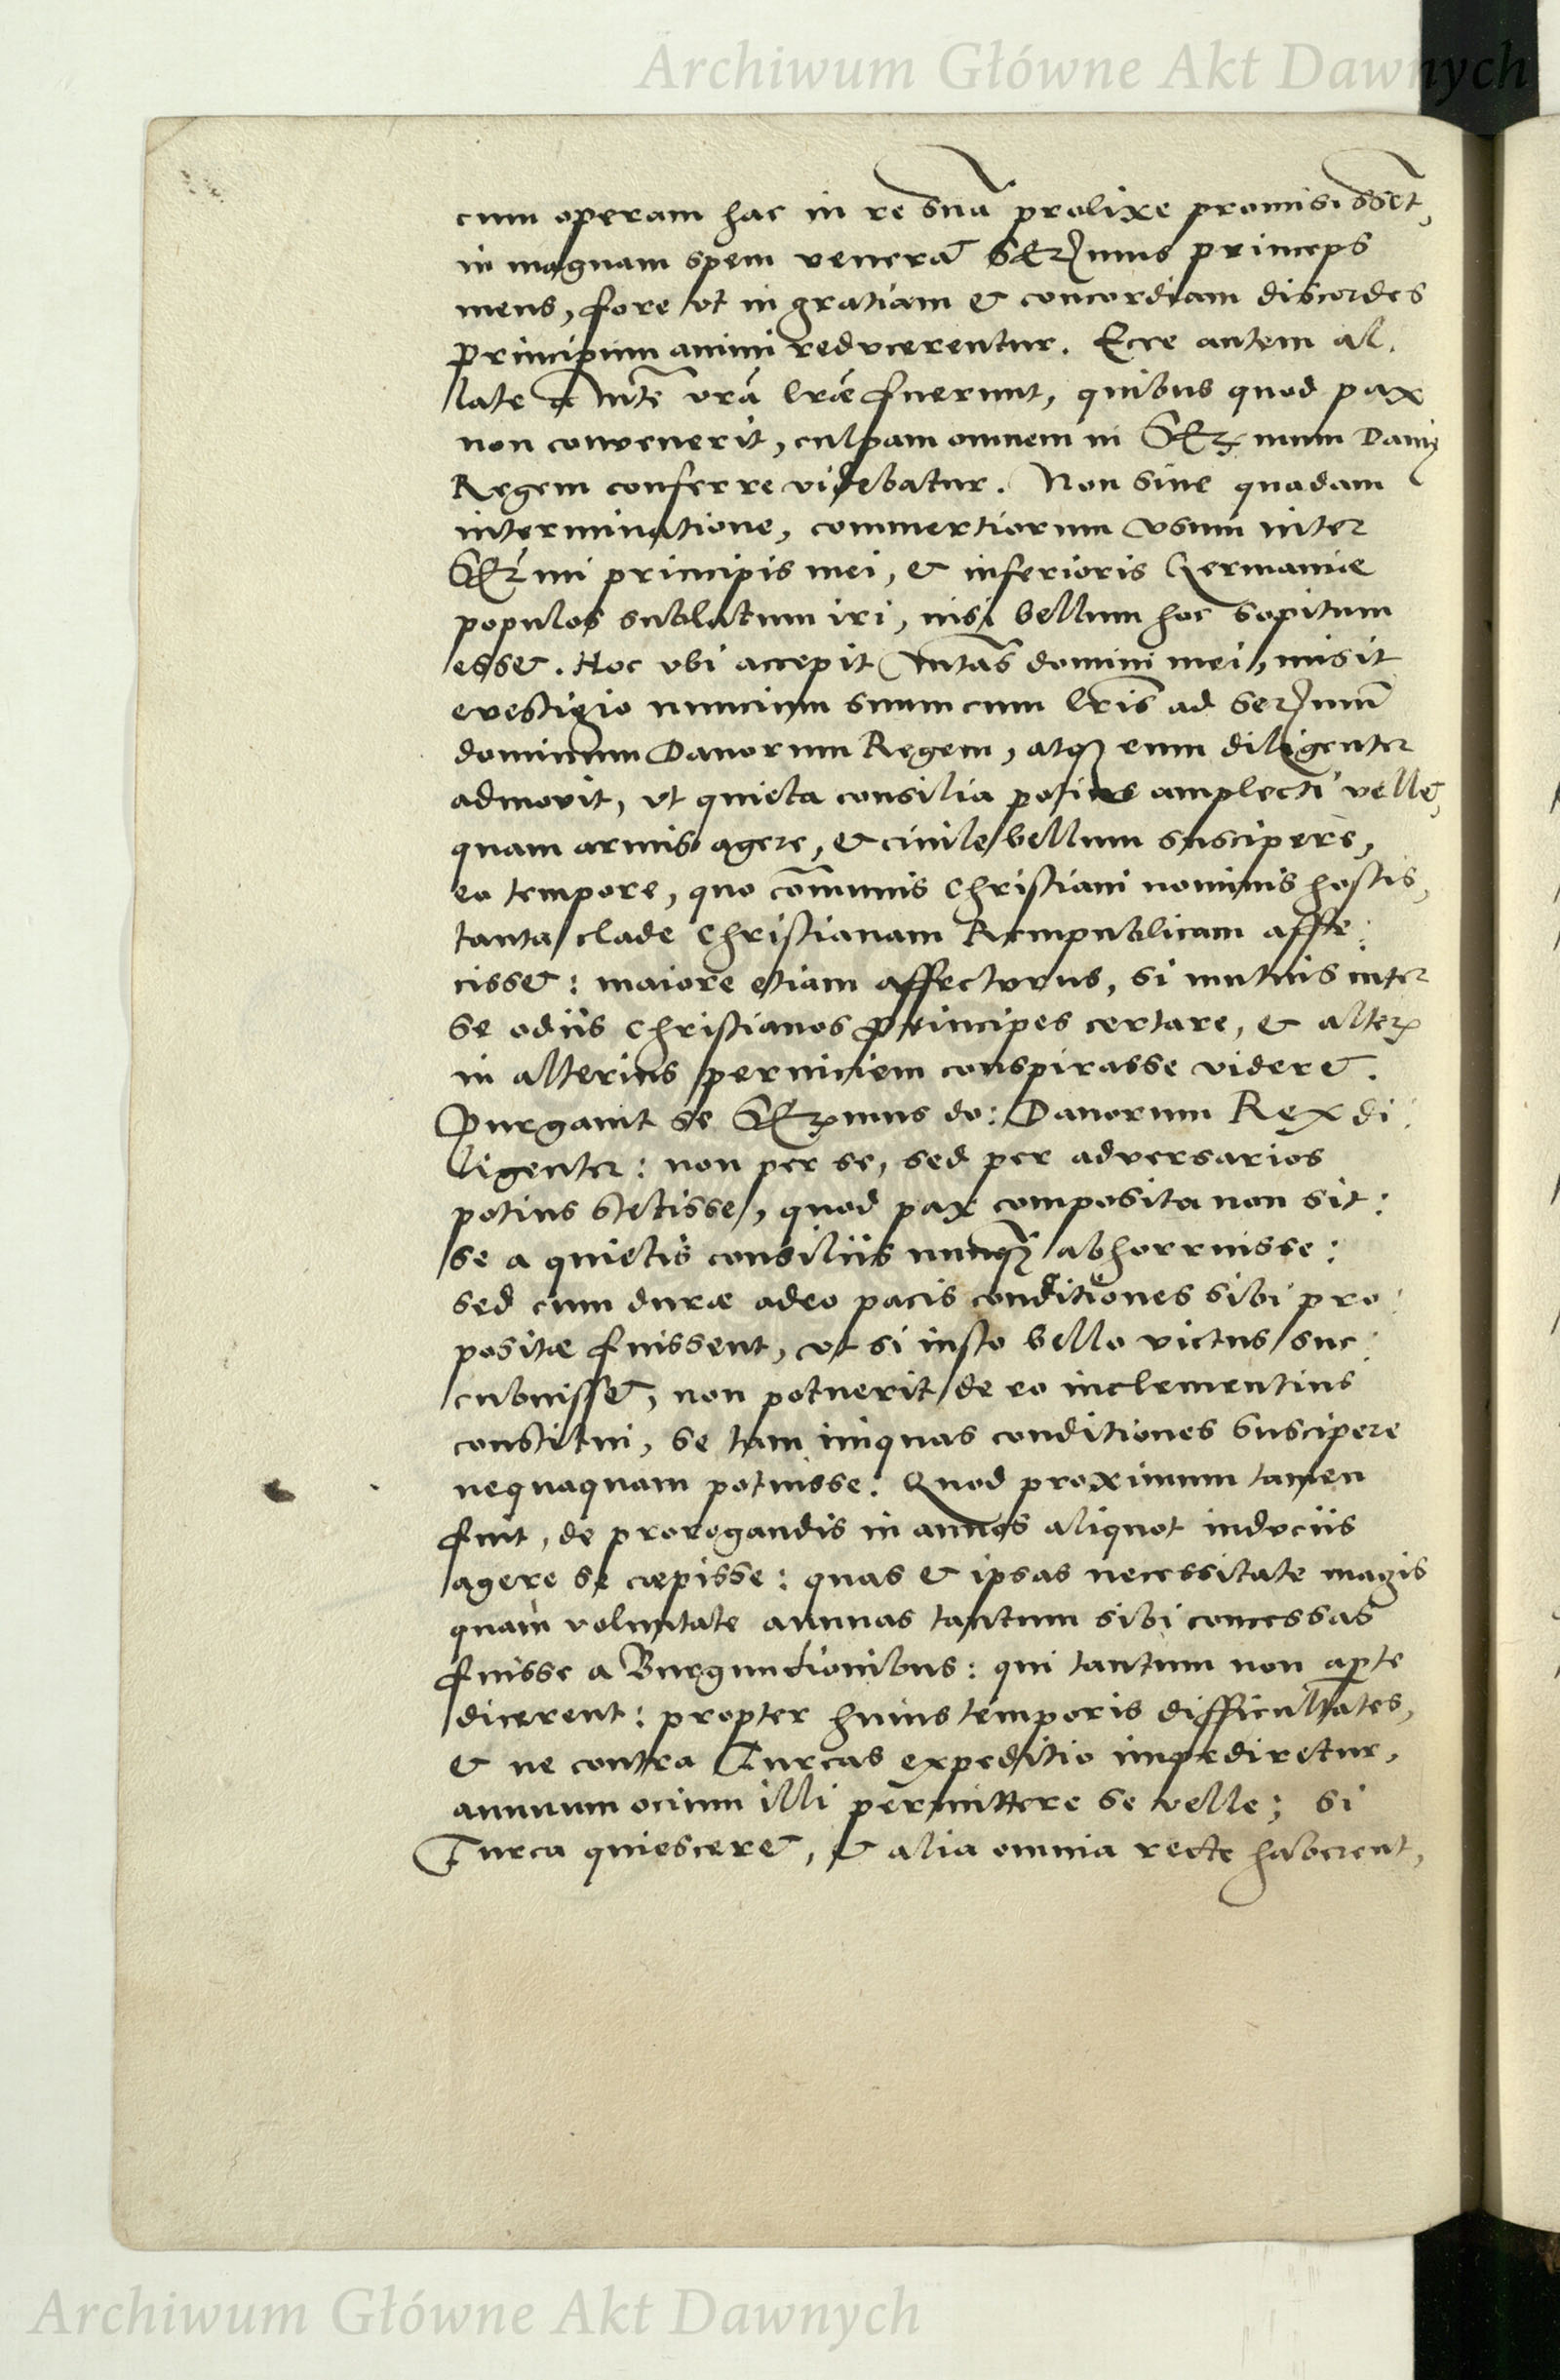 Archiwum Główne Akt Dawnych
cum operam hac in re suā prolixe promisissēt,
in magnam spem venerat Sermus princeps
meus, fore ut in gratiam & concordiam discordes
principum animi reducerentur. Ecce autem al:
late a Mte vrā lræ fuerunt, quibus quod pax
non convenerit, culpam omnem in Sermum Daniæ
Regem conferre videbatur. Non sine quadam
interminatione, commertiorum usum inter
Sermi principis mei, & inferioris Germaniæ
populos sublatum iri, nisi bellum hoc sopitum
esset. Hoc ubi accepit Mtas domini mei, misit
evestigio nuncium suum cum lris ad Sermum
dominum Danorum Regem, atq eum diligenter
admovit, ut quieta consilia potius amplecti vellet,
quam armis agere, & civile bellum suscipere,
eo tempore, quo cōmunis Christiani nominis hostis,
tanta clade Christianam Rempublicam affe:
cisset: maiore etiam affecturus, si mutuis inter
se odiis Christianos principes certare, & alterū
in alterius perniciem conspirasse videret.
Purgavit se Sermus do: Danorum Rex di:
ligenter: non per se, sed per adversarios
potius stetisse, quod pax composita non sit:
se a quietis consiliis nunq abhorruisse:
sed cum duræ adeo pacis conditiones sibi pro:
positæ fuissent, ut si iusto bello victus suc:
cubuisset, non potuerit de eo inclementius
constitui, se tam iniquas conditiones suscipere
nequaquam potuisse: Quod proximum tamen
fuit, de prorogandis in annos aliquot induciis
agere se cœpisse: quas & ipsas necessitate magis
quam voluntate annuas tantum sibi concessas
fuisse a Burgundionibus: qui tantum non apte
dicerent: propter huius temporis difficultates,
& ne contra Turcas expeditio impediretur,
annuum ocium illi permittere se velle; si
Turca quiesceret, & alia omnia recte haberent,
Archiwum Główne Akt Dawnych